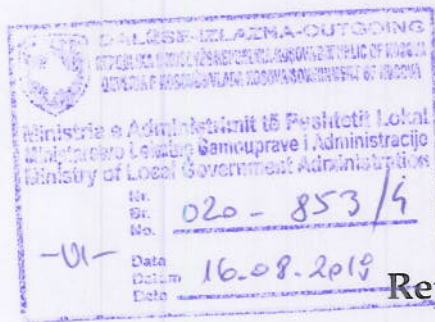 DALËSE-IZLAZNA-OUTGOING
Ministria e Administrimit të Pushtetit Lokal
Ministarstvo Lokalne Samouprave i Administracije
Ministry of Local Government Administration
Nr.
Br.
No.
020-853/
-VI-
Data
Datum
Date
16-08-201
Re